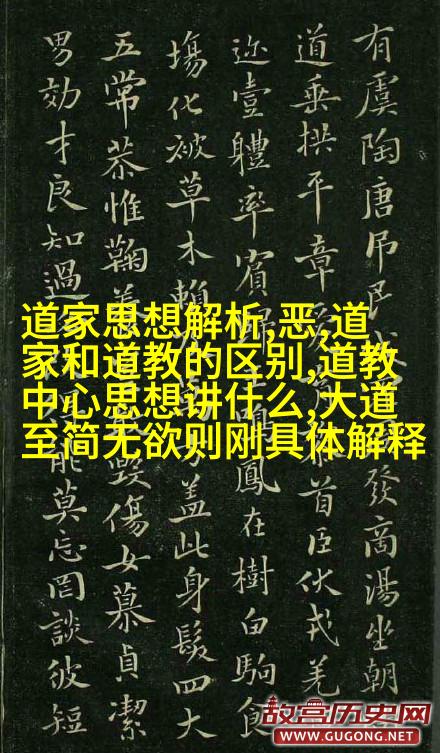 有虞陶唐吊民伐發商湯坐朝
道垂拱平章愛首臣伏戎羌
迩壹體率賓歸王鳴鳳在樹白駒食
塲化被草木賴方蓋此身髮四大
五常恭惟鞠養毀傷女慕貞潔
男効才良知過能莫忘罔談彼短
道家思想解析,恶,道
家和道教的区别,道教
中心思想讲什么,大道
至简无欲则刚具体解释
故宫历史网
WWW.GUGONG.NET